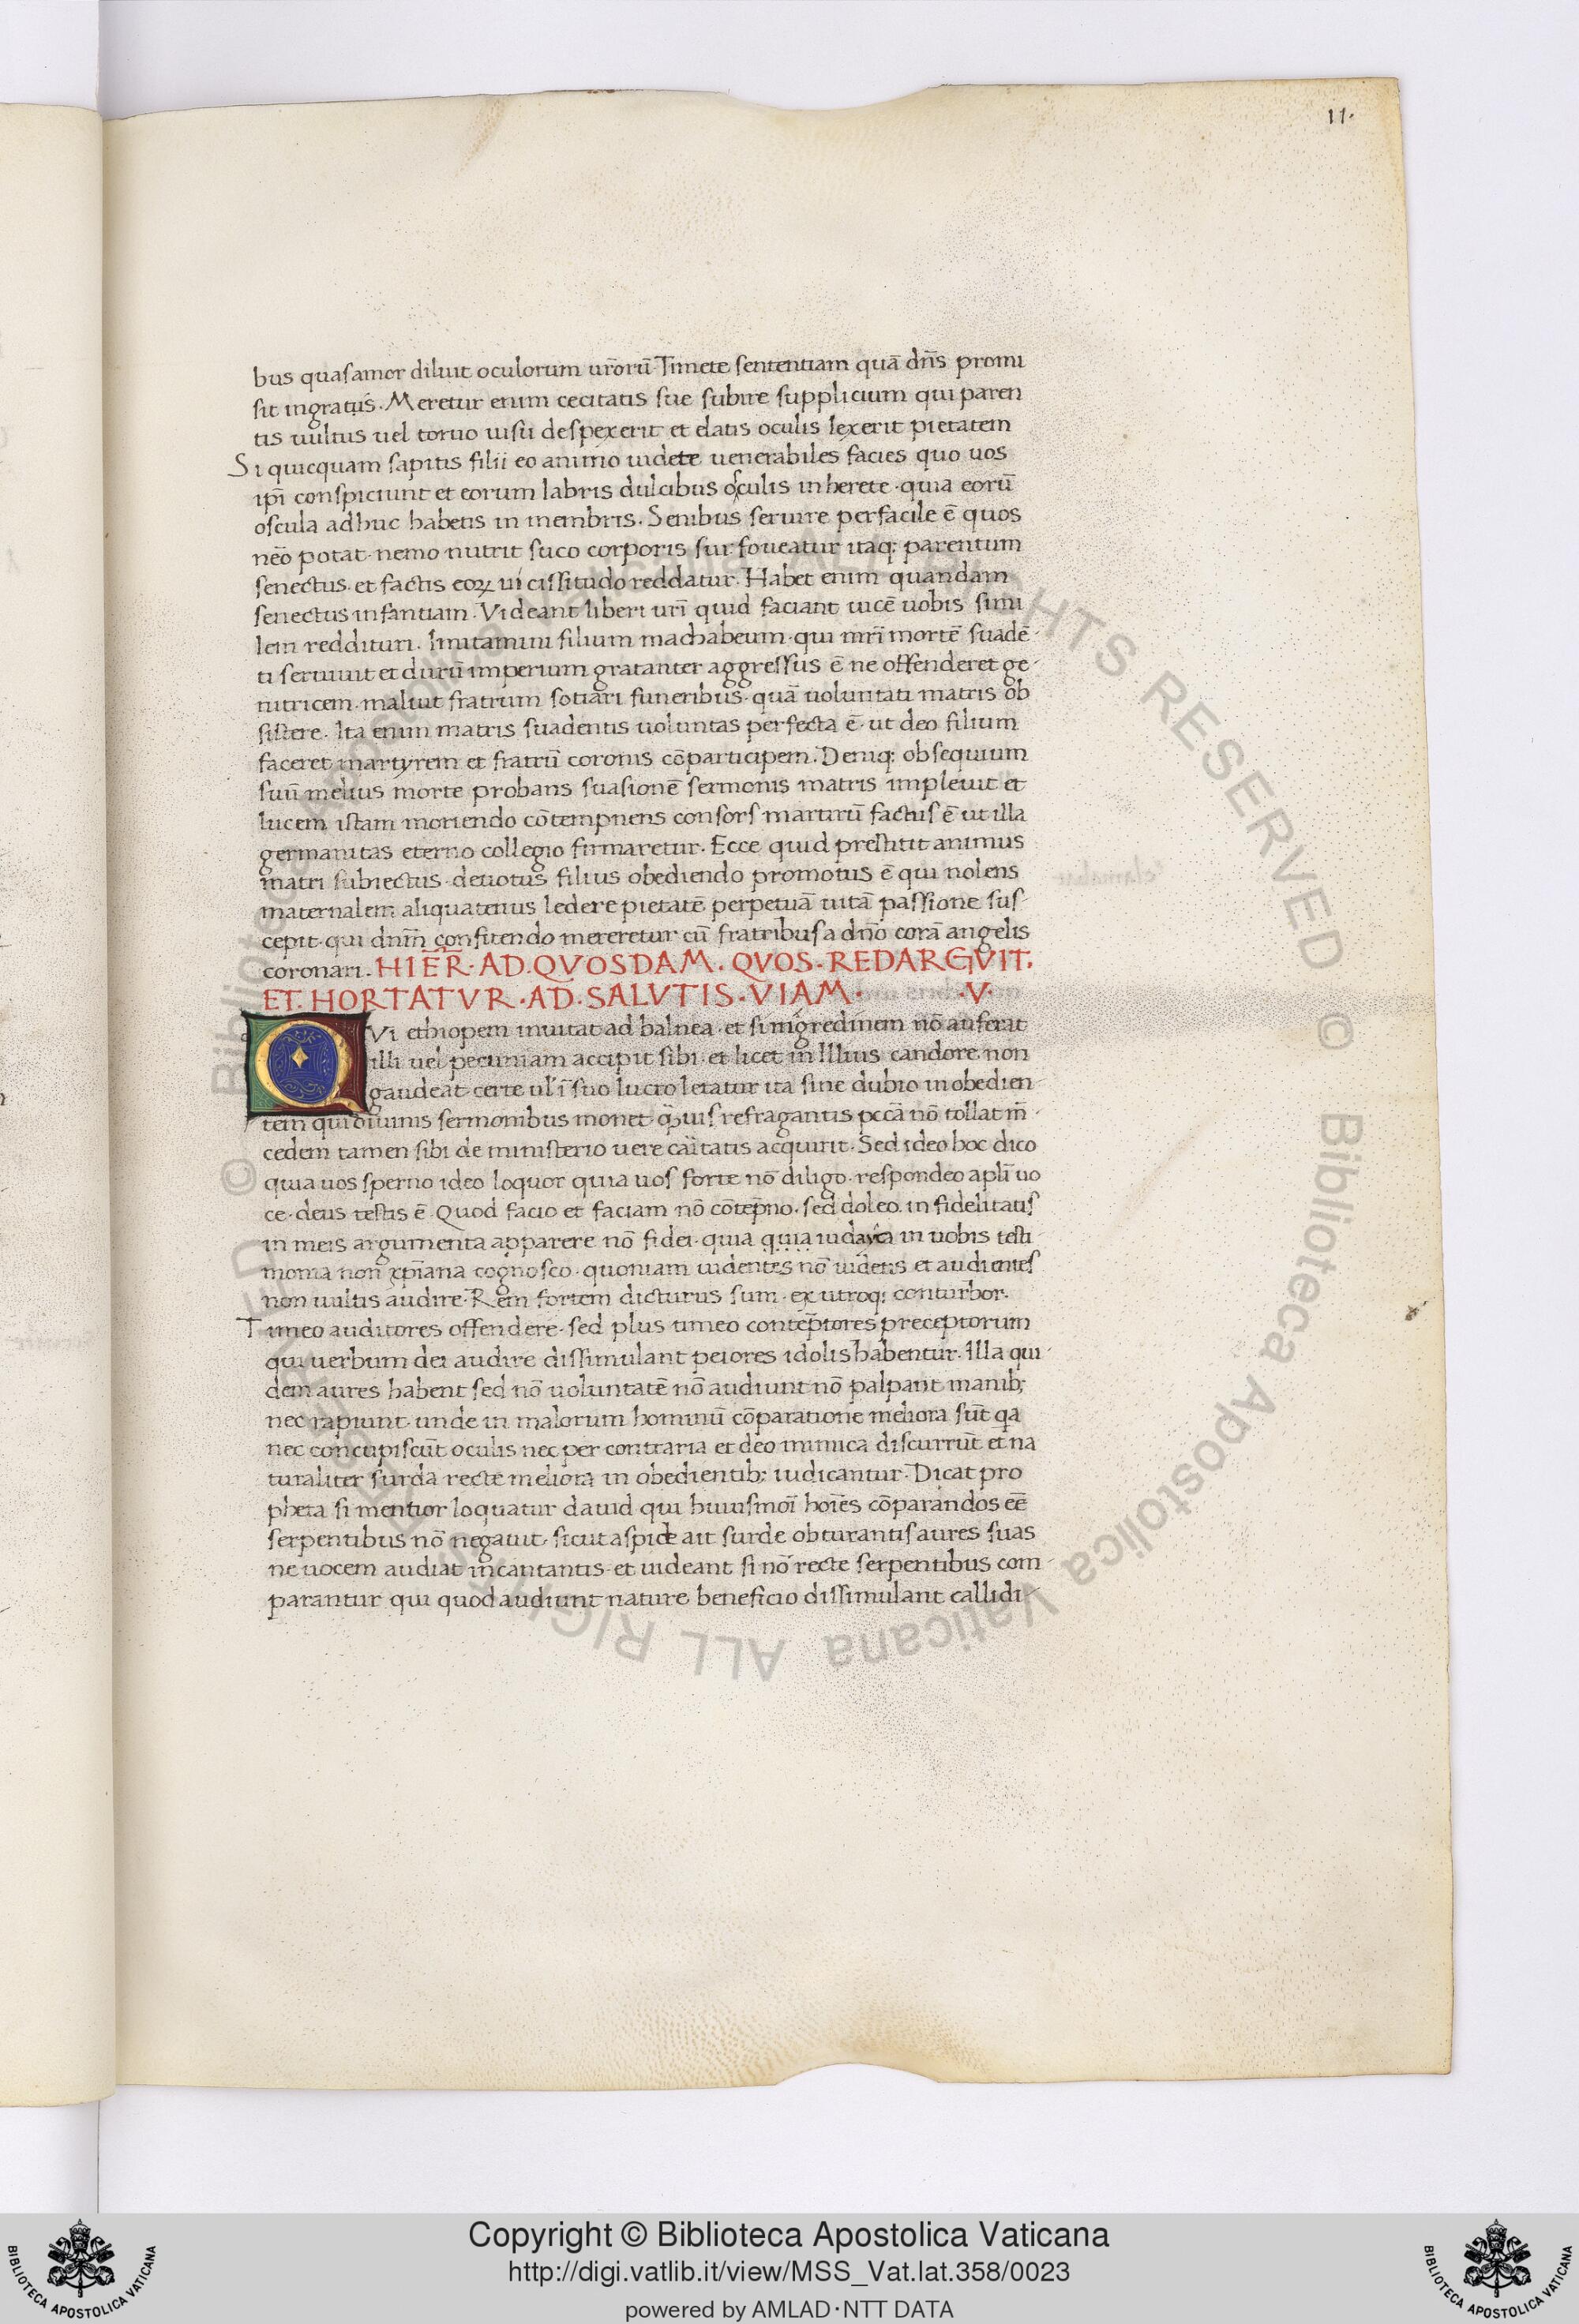 11.
bus quas amor diluit oculorum ur̄orū. Timete sententiam quā dn̄s promi
sit ingratis. Meretur enim cecitatis sue subire supplicium qui paren
tis uultus uel toruo uisu despexerit et elatis oculis lexerit pietatem
Si quicquam sapitis filii eo animo uidete uenerabiles facies quo uos
ip̄i conspiciunt et eorum labris dulcibus osculis inherete · quia eorū
oscula adhuc habetis in membris. Senibus seruire perfacile ē quos
neō potat · nemo nutrit suco corporis sui · foueatur itaq; parentum
senectus · et factis eoꝝ uicissitudo reddatur. Habet enim quandam
senectus infantiam. Videant liberi ur̄i quid faciant uicē uobis simi
lem reddituri. Imitamini filium machabeum · qui mr̄i mortē suadē-
ti seruiuit et durū imperium gratanter aggressus ē ne offenderet ge-
nitricem · maluit fratrum sotiari funeribus · quā uoluntati matris ob
sistere. Ita enim matris suadentis uoluntas perfecta ē · ut deo filium
faceret martyrem et fratrū coronis cōparticipem. Deniq; obsequium
suū melius morte probans suasionē sermonis matris impleuit et
lucem istam moriendo cōtempnens consors martirū factus ē ut illa
germanitas eterno collegio firmaretur. Ecce quid prestitit animus
matri subiectus · deuotus filius obediendo promotus ē qui nolens
maternalem aliquatenus ledere pietatē perpetuā uitā passione sus-
cepit · qui dn̄m confitendo mereretur cū fratribus a dn̄o corā angelis
coronari. HIER̄ · AD · QVOSDAM · QVOS · REDARGVIT.
ET · HORTATVR · AD · SALVTIS · VIAM · ·V·
QVi ethiopem inuitat ad balnea · et si nigredinem nō auferat
illi uel pecuniam accipit sibi · et licet in illius candore non
gaudeat · certe ul̄i suo lucro letatur ita sine dubio inobedien-
tem qui diuinis sermonibus monet · q̄uis refragantis pccā nō tollat m̄-
cedem tamen sibi de ministerio uere caītatis acquirit. Sed ideo hoc dico
quia uos sperno ideo loquor quia uos forte nō diligo · respondeo apl̄i uo
ce · deus testis ē. Quod facio et faciam nō cōtep̄no · sed doleo · infidelitatis
in meis argumenta apparere nō fidei · quia quia iudayca in uobis testi
monia non xp̄iana cognosco · quoniam uidentes nō uidetis et audientes
non uultis audire. Rem fortem dicturus sum · ex utroq; conturbor.
Timeo auditores offendere · sed plus timeo contēptores preceptorum
qui uerbum dei audire dissimulant peiores idolis habentur. Illa qui-
dem aures habent sed nō uoluntatē nō audiunt nō palpant manib;
nec rapiunt · unde in malorum hominū cōparatione meliora sūt qa
nec concupiscūt oculis nec per contraria et deo inimica discurrūt et na
turaliter surda recte meliora inobedientib; iudicantur. Dicat pro
pheta si mentior loquatur dauid qui huiusmoī hoīes cōparandos eē
serpentibus nō negauit · sicut aspide ait surde obturantis aures suas
ne uocem audiat incantantis · et uideant si nō recte serpentibus com-
parantur qui quod audiunt nature beneficio dissimulant callidi-
Copyright © Biblioteca Apostolica Vaticana
http://digi.vatlib.it/view/MSS_Vat.lat.358/0023
powered by AMLAD·NTT DATA